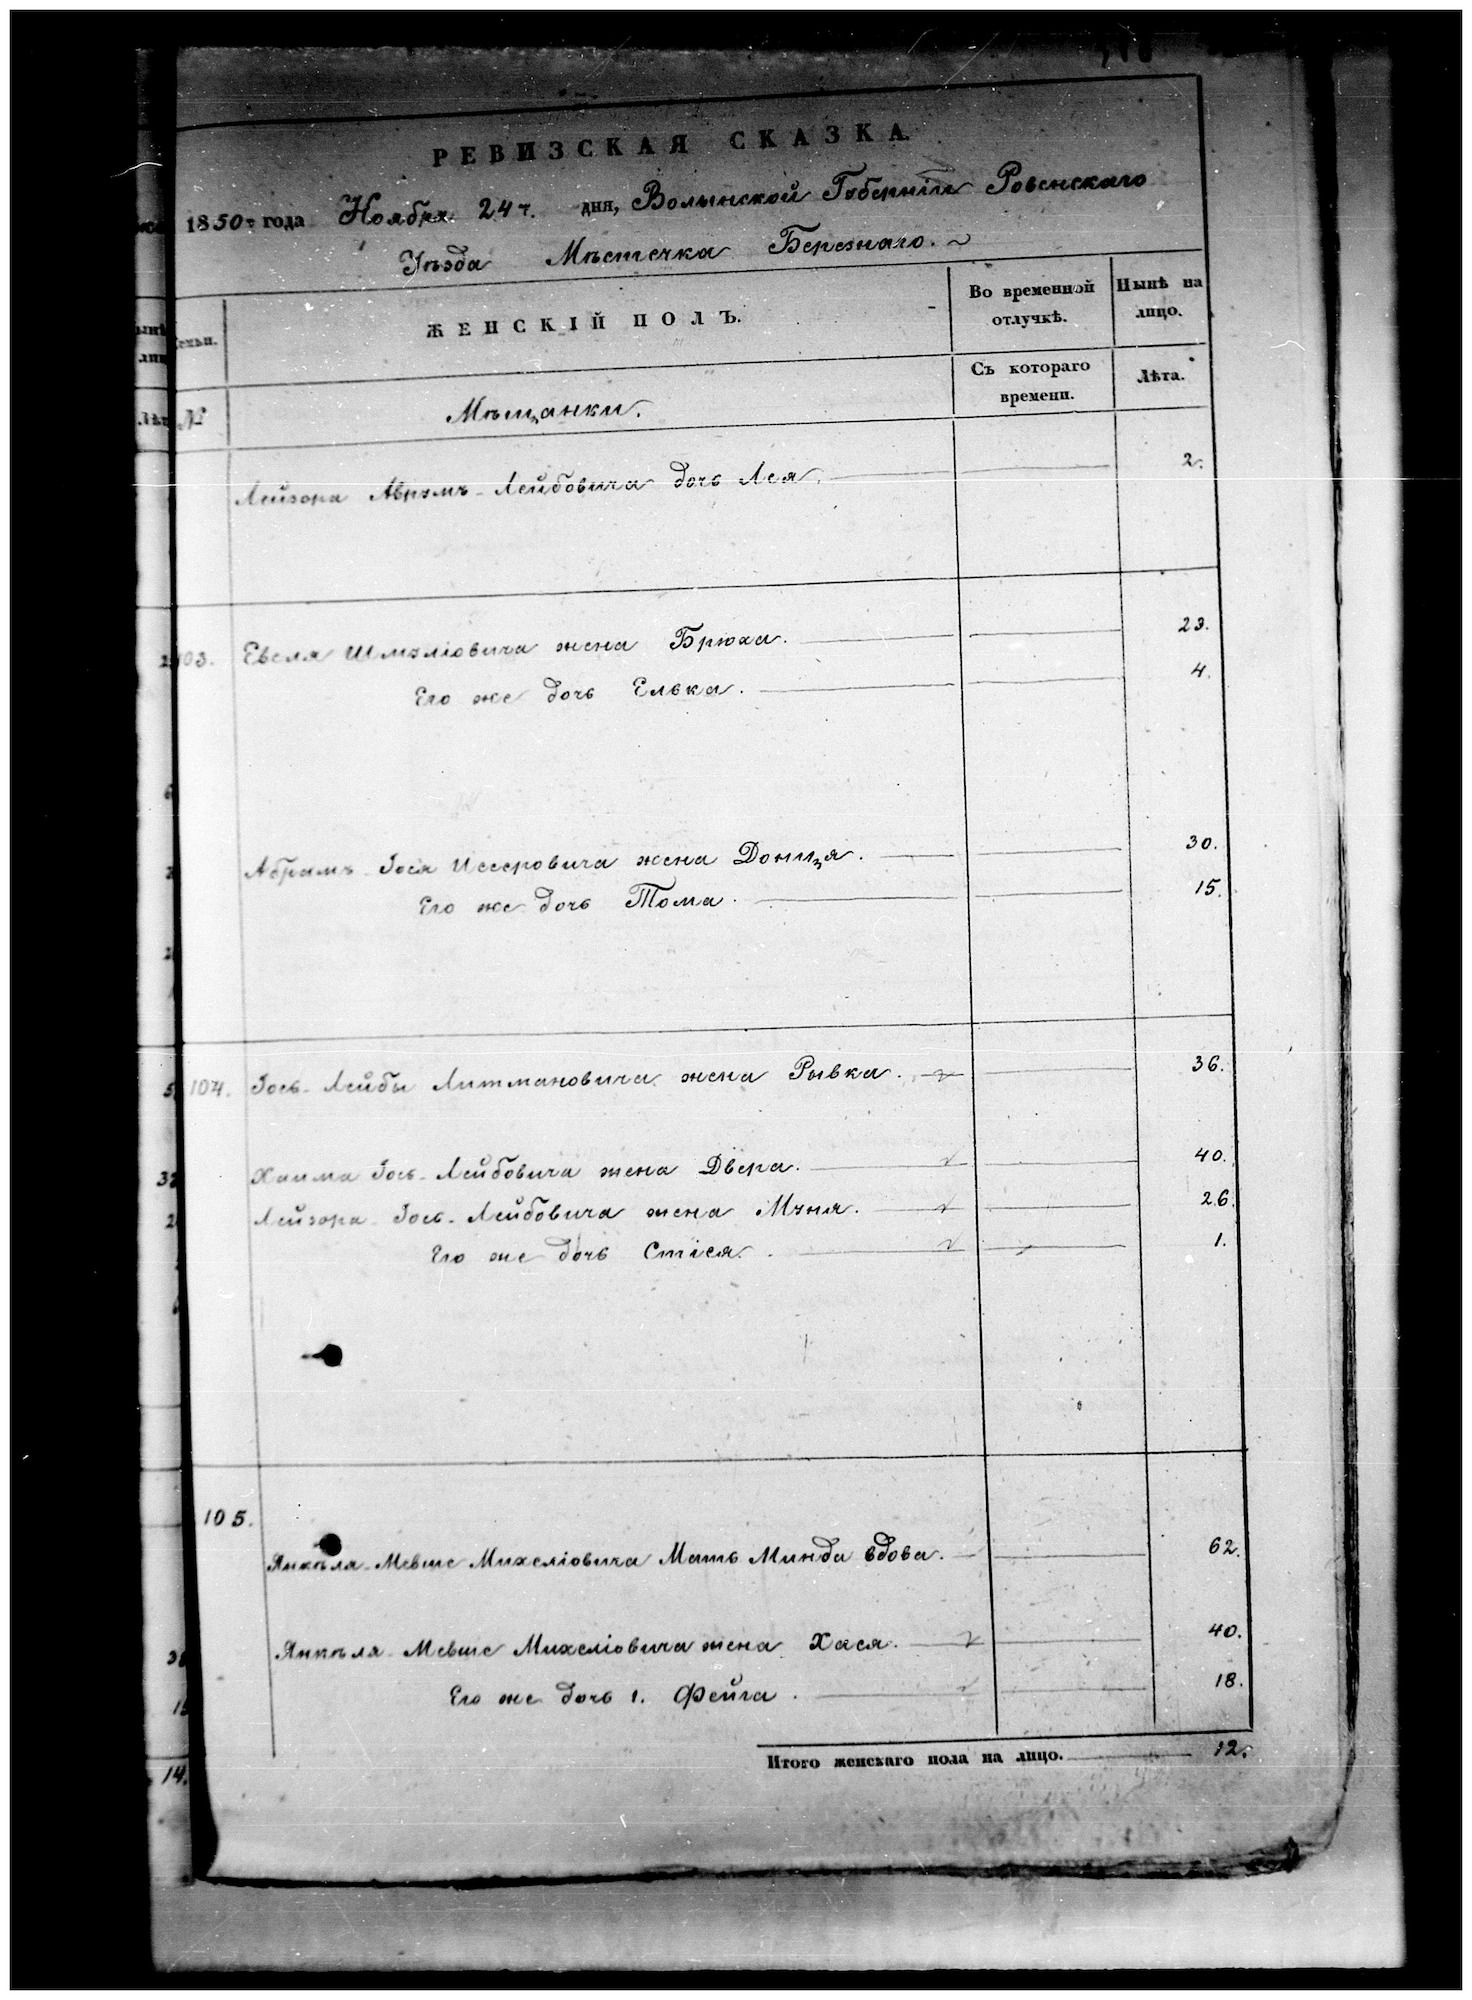 РЕВИЗСКАЯ СКАЗКА.
1850 года Ноября 24 дня, Волынской Губерніи Ровенскаго
Уѣзда Мѣстечка Березнаго.
Семьи.
ЖЕНСКІЙ ПОЛЪ.
Во временной отлучкѣ.
Нынѣ на лицо.
№
Мѣщанки.
Съ котораго времени.
Лѣта.
Лейзора Аврумъ-Лейбовича дочь Лея. 2.
103. Евеля Шмуліовича жена Брюха. 23.
Его же дочь Елька. 4.
Абрамъ Іося Иссеровича жена Доница. 30.
Его же дочь Тома. 15.
104. Іось-Лейбы Литмановича жена Рывка. 36.
Хаима Іось-Лейбовича жена Двера. 40.
Лейзора Іось-Лейбовича жена Мэня. 26.
Его же дочь Стіся. 1.
105.
Янкеля-Мевше Михеліовича Мать Минда вдова. 62.
Янкеля-Мевше Михеліовича жена Хася. 40.
Его же дочь 1. Фейга. 18.
Итого женскаго пола на лицо. 12.
14.